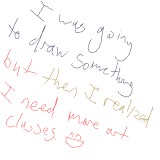 I was going
to draw something
but then I realized
I need more art
classes.